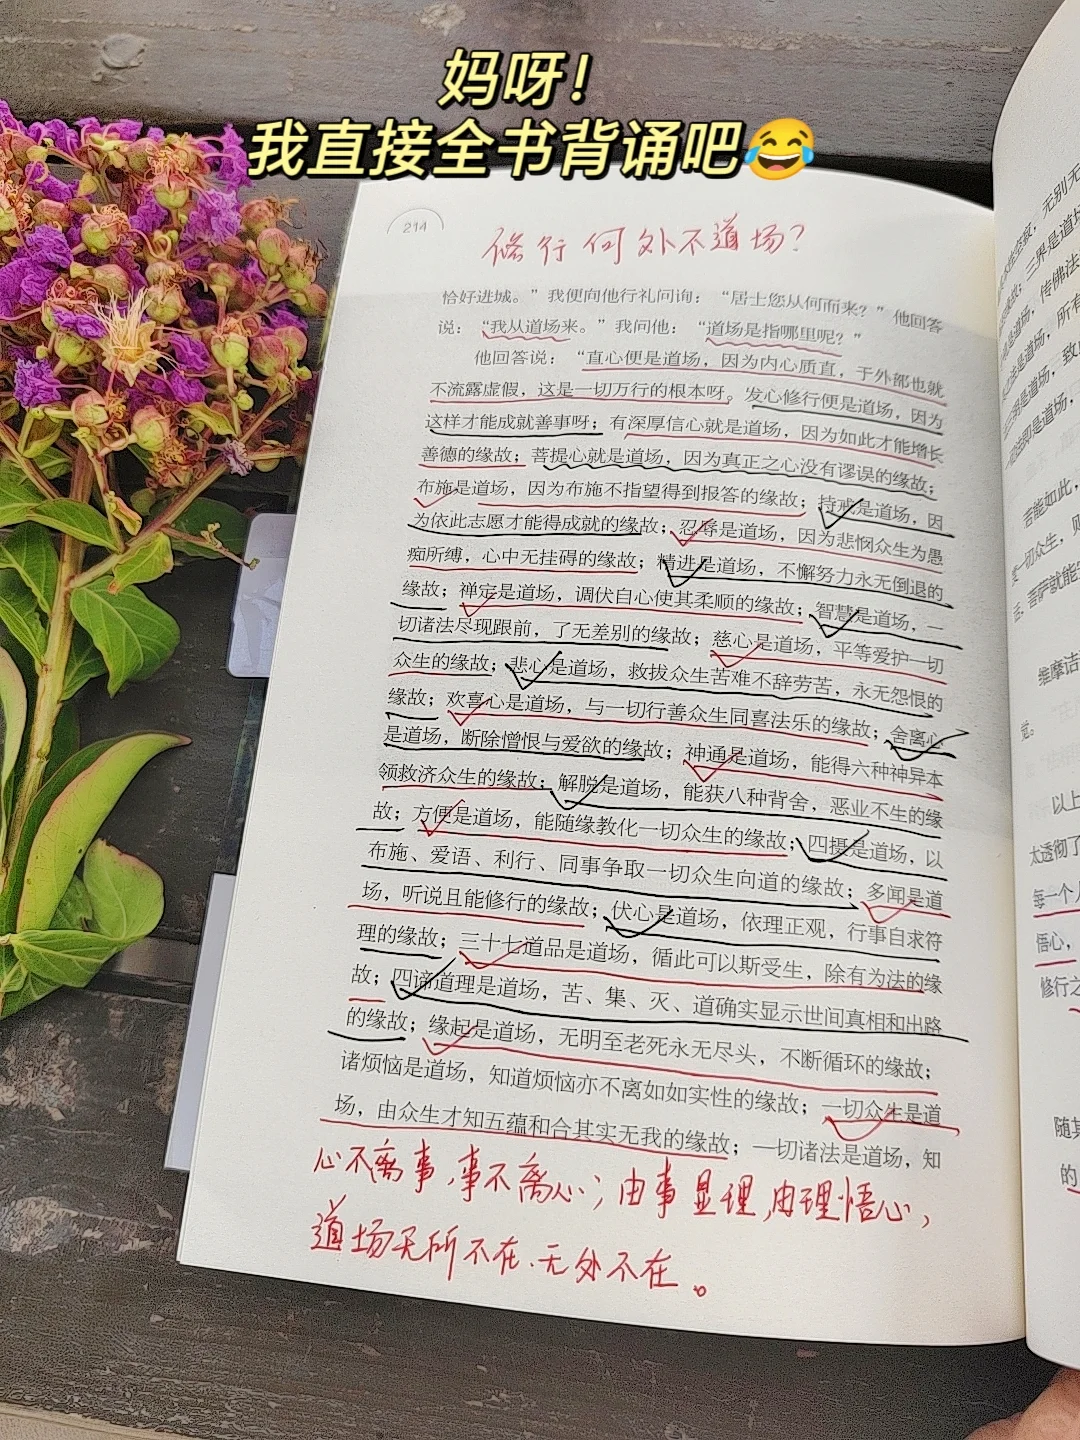 妈呀！
我直接全书背诵吧😂
214
修行何处不道场？
恰好进城。”我便向他行礼问询：“居士您从何而来？”他回答
说：“我从道场来。”我问他：“道场是指哪里呢？”
他回答说：“直心便是道场，因为内心质直，于外部也就
不流露虚假，这是一切万行的根本呀。发心修行便是道场，因为
这样才能成就善事呀；有深厚信心就是道场，因为如此才能增长
善德的缘故；菩提心就是道场，因为真正之心没有谬误的缘故；
布施是道场，因为布施不指望得到报答的缘故；持戒是道场，因
为依此志愿才能得成就的缘故；忍辱是道场，因为悲悯众生为愚
痴所缚，心中无挂碍的缘故；精进是道场，不懈努力永无倒退的
缘故；禅定是道场，调伏自心使其柔顺的缘故；智慧是道场，一
切诸法尽现跟前，了无差别的缘故；慈心是道场，平等爱护一切
众生的缘故；悲心是道场，救拔众生苦难不辞劳苦，永无怨恨的
缘故；欢喜心是道场，与一切行善众生同喜法乐的缘故；舍离心
是道场，断除憎恨与爱欲的缘故；神通是道场，能得六种神异本
领救济众生的缘故；解脱是道场，能获八种背舍，恶业不生的缘
故；方便是道场，能随缘教化一切众生的缘故；四摄是道场，以
布施、爱语、利行、同事争取一切众生向道的缘故；多闻是道
场，听说且能修行的缘故；伏心是道场，依理正观，行事自求符
理的缘故；三十七道品是道场，循此可以斯受生，除有为法的缘
故；四谛道理是道场，苦、集、灭、道确实显示世间真相和出路
的缘故；缘起是道场，无明至老死永无尽头，不断循环的缘故；
诸烦恼是道场，知道烦恼亦不离如如实性的缘故；一切众生是道
场，由众生才知五蕴和合其实无我的缘故；一切诸法是道场，知
心不离事，事不离心；由事显理，由理悟心，
道场无所不在、无处不在。
无别无
三界是道场
传佛法
所有
致
即是道场，
若能如此，
一切众生，
菩萨就能
维摩诘
觉。
以上
太透彻了
每一个人
悟心，
修行之
随其
的